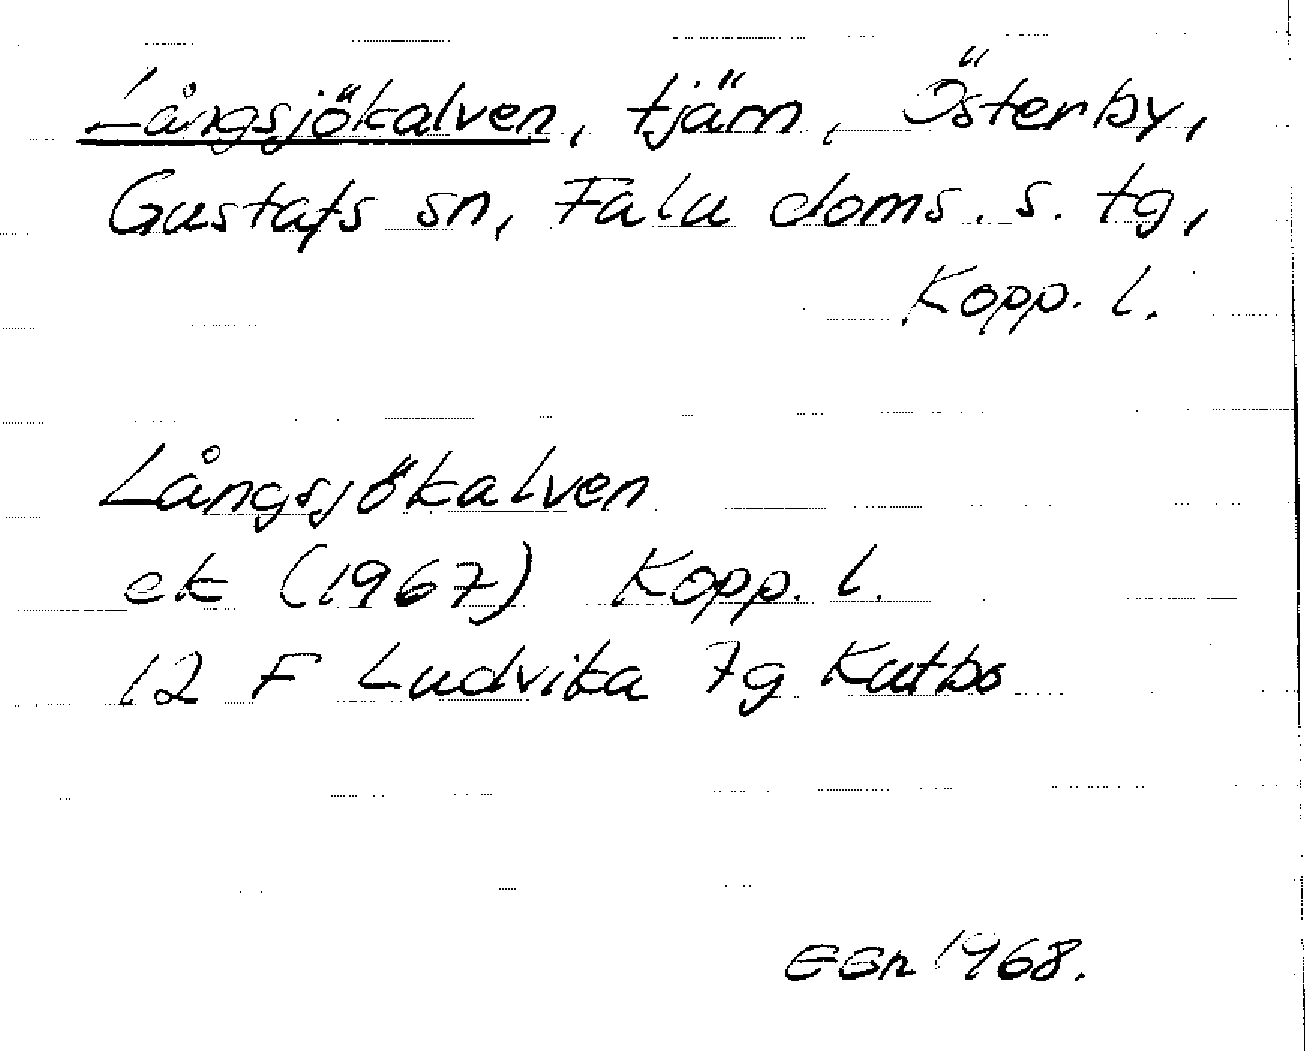 Långsjökalven, tjärn, Österby,
Gustafs sn, Falu doms. s. tg,
Kopp. l.
Långsjökalven
ek (1967) Kopp. l.
12 F Ludvika 7g Kutbo
EGn 1968.